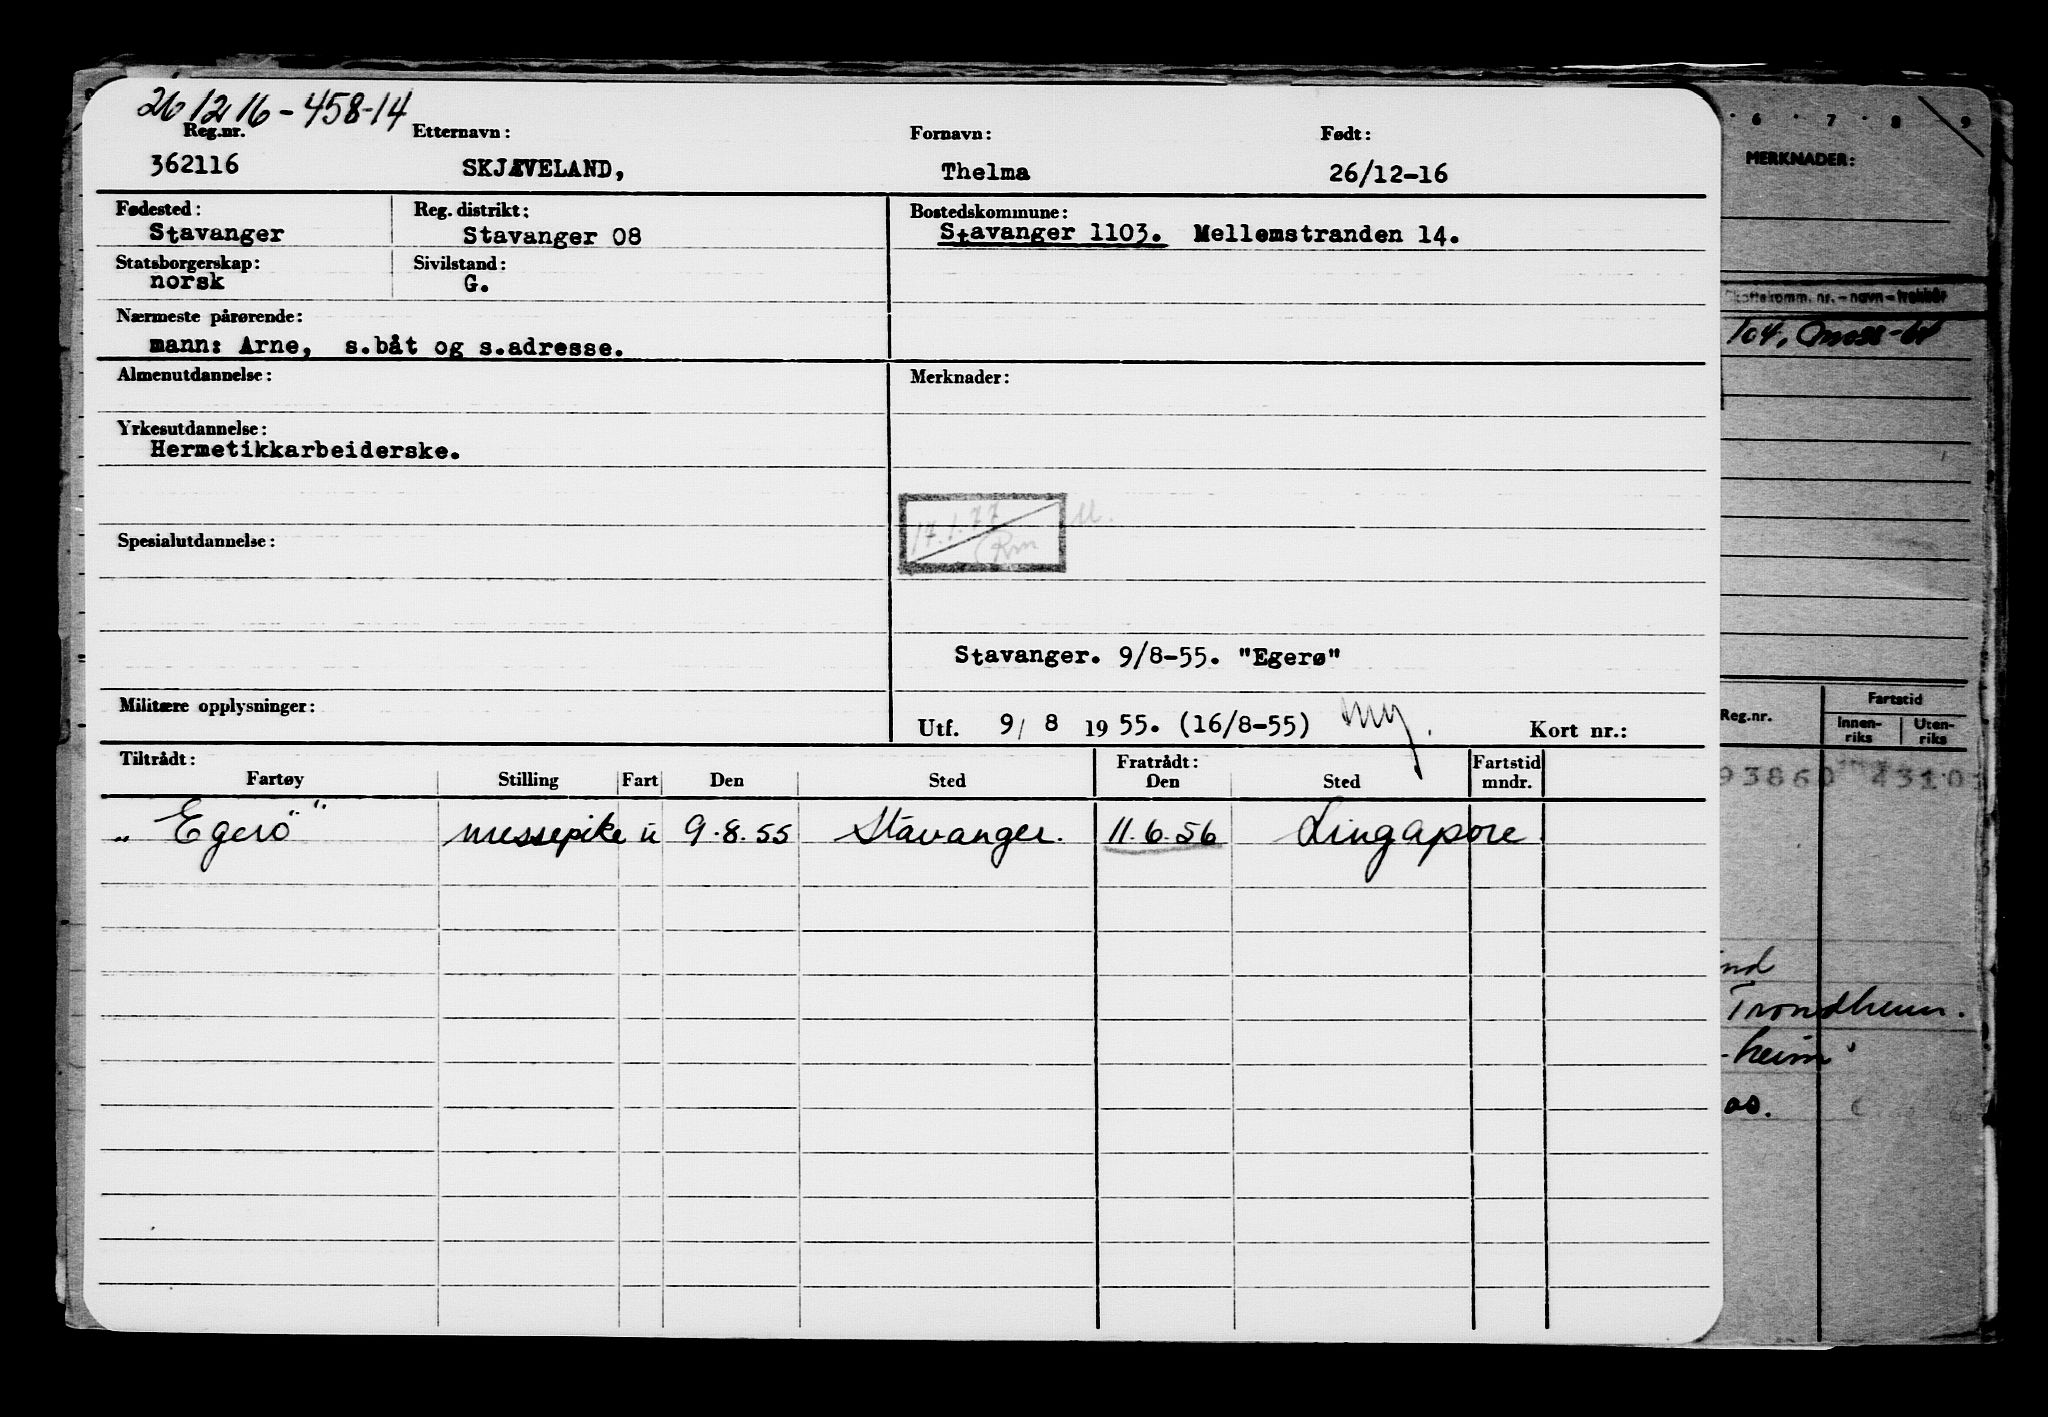 26 12 16 - 458-14
Reg.nr. Etternavn: Fornavn: Født:
362116 SKJÆVELAND, Thelma 26/12-16
Fødested: Reg. distrikt: Bostedskommune:
Stavanger Stavanger 08 Stavanger 1103. Mellomstranden 14.
Statsborgerskap: Sivilstand:
norsk G.
Nærmeste pårørende:
mann: Arne, s.båt og s.adresse.
Almenutdannelse: Merknader:
Yrkesutdannelse:
Hermetikkarbeiderske.
17.1.77
Spesialutdannelse:
Stavanger. 9/8-55. "Egerø"
Militære opplysninger:
Utf. 9/ 8 1955. (16/8-55) Kort nr.:
Tiltrådt: Fratrådt: Fartstid
Fartøy Stilling Fart Den Sted Den Sted mndr.
"Egerö" messepike u 9.8.55 Stavanger. 11.6.56 Singapore
6 7 8 9
MERKNADER:
Skattekomm. nr. - navn - trekkår
104, Moss-61
Fartstid
Reg.nr. Innen- Uten-
riks riks
93860 4310
Trondheim.
-heim
os.